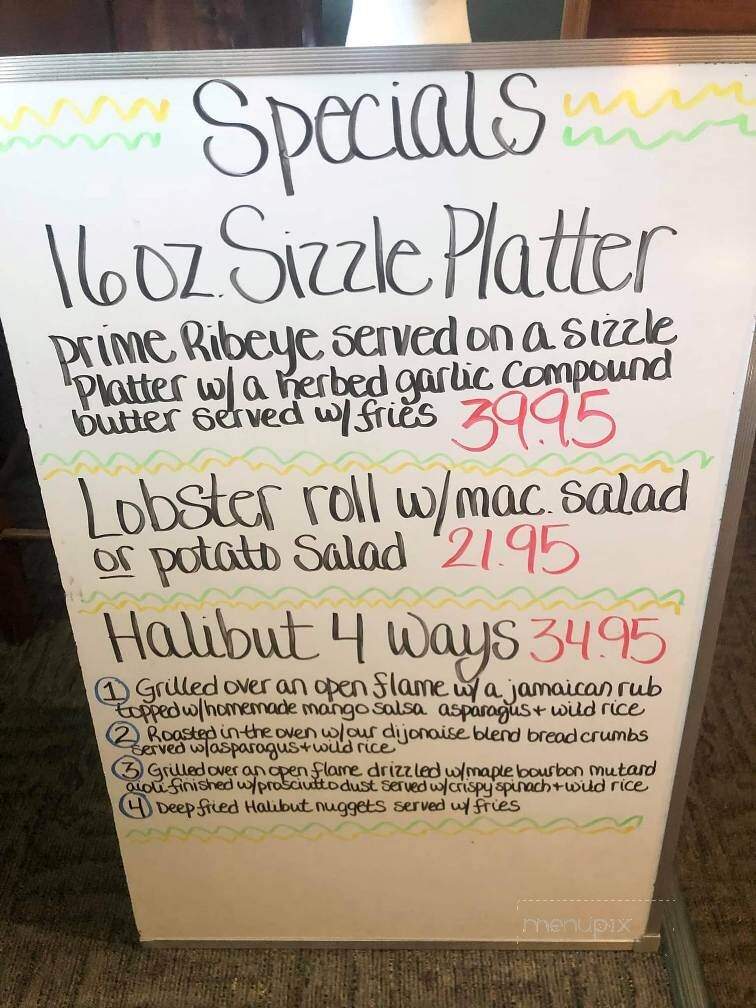 Specials
16 oz. Sizzle Platter
prime Ribeye served on a sizzle
Platter w/ a herbed garlic compound
butter served w/ fries 39.95
Lobster roll w/ mac. salad
or potato Salad 21.95
Halibut 4 ways 34.95
1 Grilled over an open flame w/ a jamaican rub
topped w/ homemade mango salsa asparagus + wild rice
2 Roasted in the oven w/ our dijonaise blend bread crumbs
served w/ asparagus + wild rice
3 Grilled over an open flame drizzled w/ maple bourbon mutard
aioli finished w/ prosciutto dust served w/ crispy spinach + wild rice
4 Deep fried Halibut nuggets served w/ fries
menupix